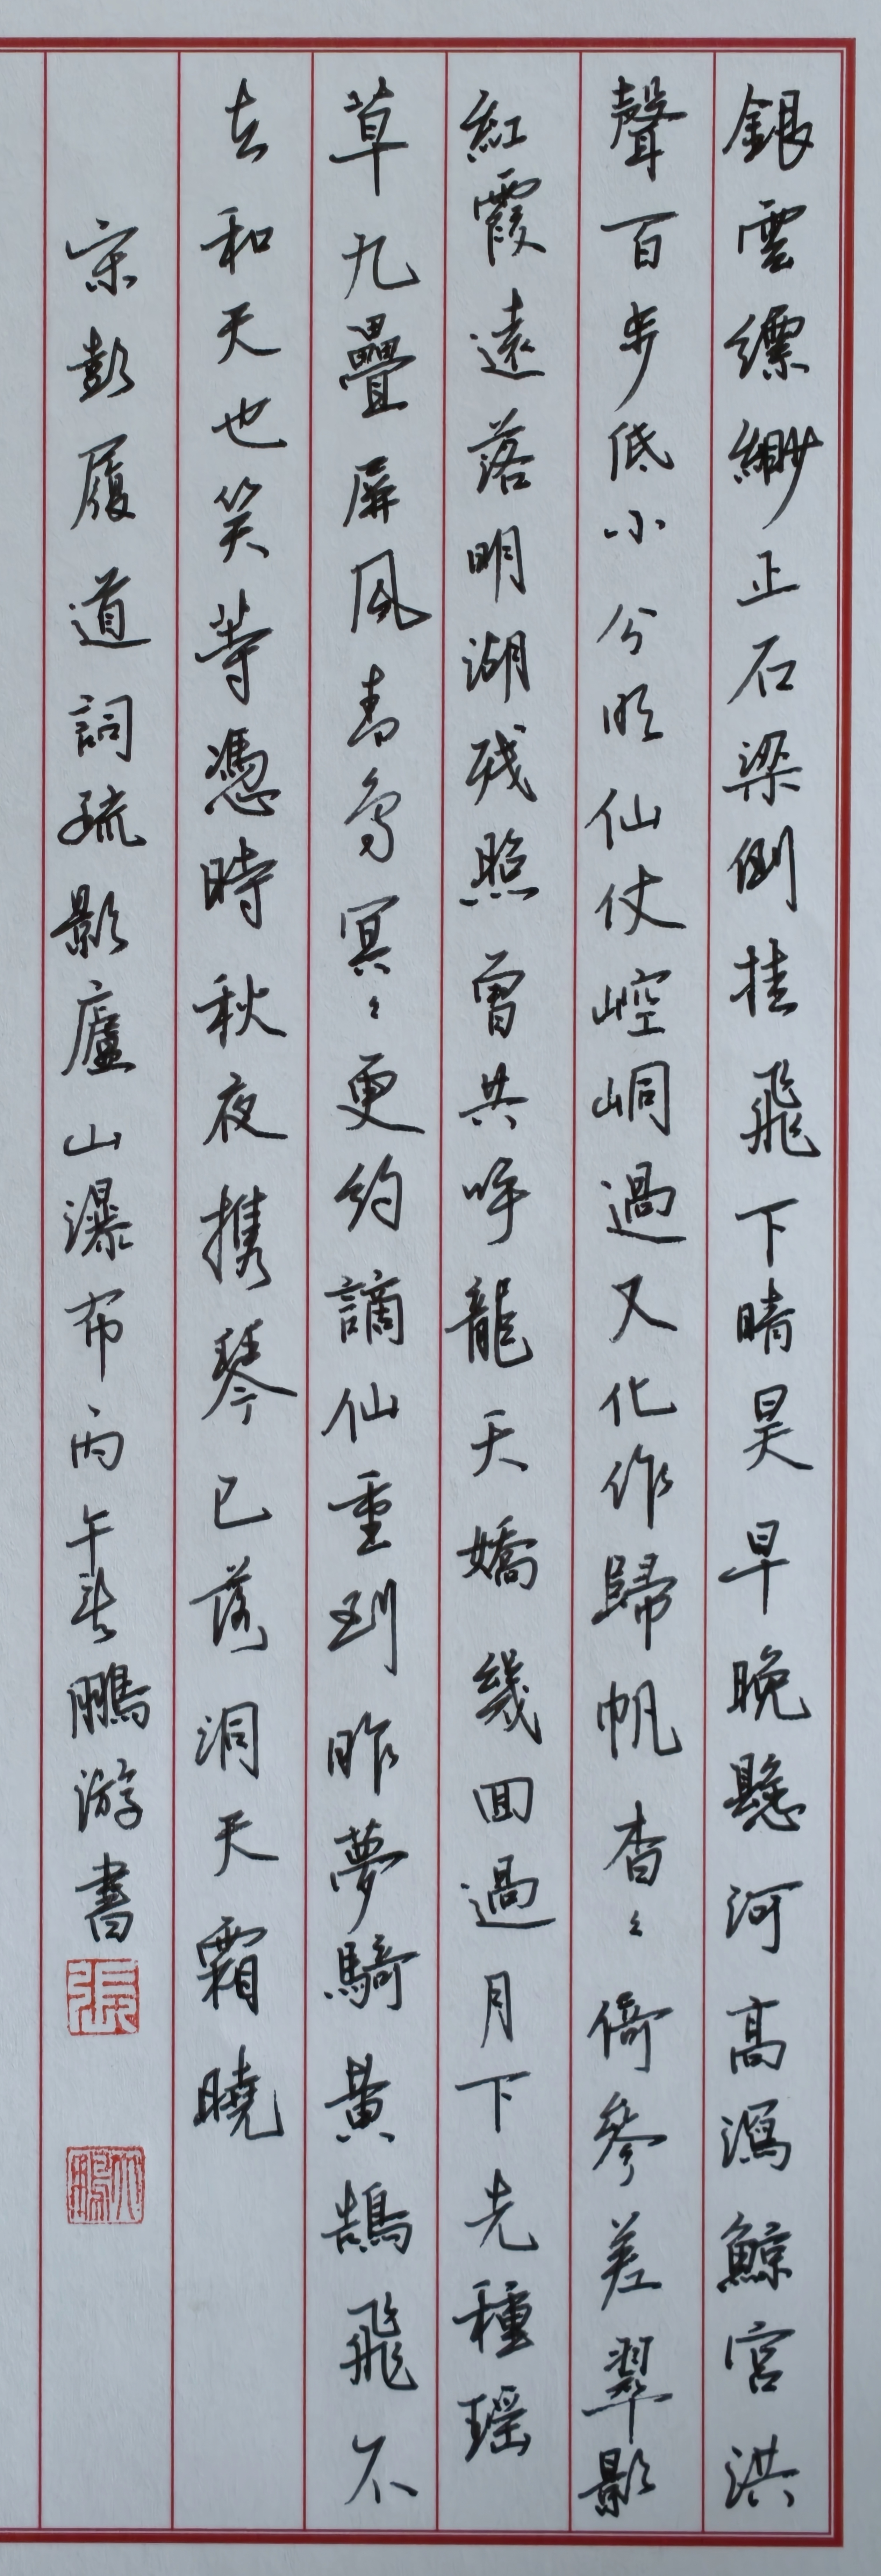 銀雲縹緲正石梁倒挂飛下晴昊早晚懸河高瀉鯨宮洪
聲百步低小分明仙仗崆峒過又化作歸帆杳々倚參差翠影
紅霞遠落明湖残照曾共呼龍夭嬌幾回過月下先種瑶
草九疊屏風青鳥冥々更約謫仙重到昨夢騎黃鵠飛不
去和天也笑等憑時秋夜携琴已落洞天霜曉
宋彭履道詞疏影廬山瀑布丙午春鵬游書
張